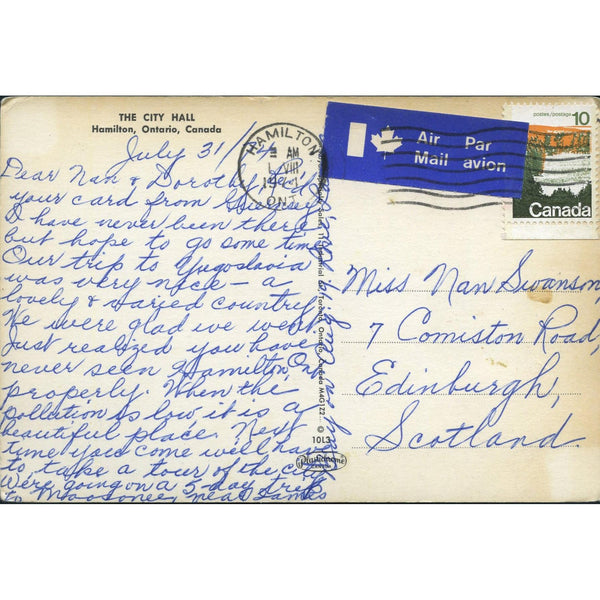 THE CITY HALL
Hamilton, Ontario, Canada
July 31/
Dear Nan & Dorothy,
your card from
I have never been there
but hope to go some time
Our trip to Yugoslavia
was very nice - a
lovely & varied country
We were glad we went
Just realized you have
never seen Hamilton, Ont
properly. When the
pollution is low it is a
beautiful place. Next
time you come we'll have
to take a tour of the city
We're going on a 5-day trip
to Moosonee, near James
HAMILTON
AM
VIII
19
ONT
Air Par
Mail avion
postes/postage 10
Canada
Miss Nan Swanson,
7 Comiston Road,
Edinburgh,
Scotland.
Ontario, Canada M4G1Z2
©
10L3
Plastichrome